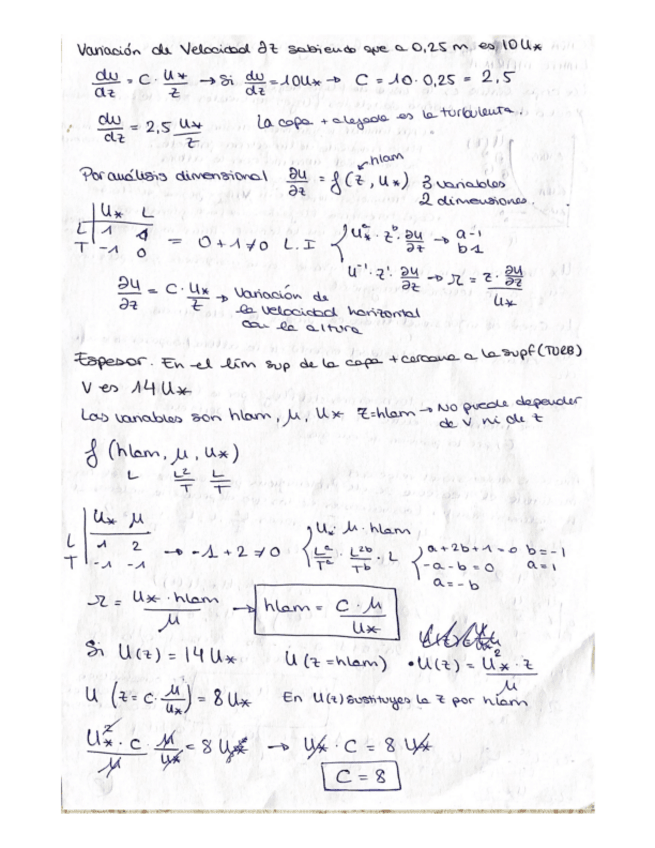 Variación de Velocidad ∂z sabiendo que a 0,25 m es 10U*
du/dz = C · U*/z → Si du/dz = 10U* → C = 10 · 0,25 = 2,5
du/dz = 2,5 U*/z La capa + alejada es la turbulenta.
hlam
Por análisis dimensional ∂u/∂z = f(z, U*) 3 variables
2 dimensiones.
U* L
L 1 1
T -1 0 = 0+1≠0 L.I { U*^a · z^b · ∂u/∂z → a-1
b 1
U^-1 · z^1 · ∂u/∂z → π = z · ∂u/∂z / U*
∂u/∂z = C · U*/z → Variación de
la velocidad horizontal
con la altura
Espesor. En el lím sup de la capa + cercana a la supf (TURB)
V es 14 U*
Las variables son hlam, μ, U* z=hlam → No puede depender
de V ni de z
f (hlam, μ, U*)
L L²/T L/T
U* μ
L 1 2
T -1 -1 → -1+2≠0 { U* · μ · hlam
L^a/T^a · L^2b/T^b · L { a+2b+1=0 b=-1
-a-b=0 a=1
a=-b
π = U* · hlam / μ → hlam = C · μ / U*
Si U(z) = 14 U* U (z=hlam) • U(z) = U*² · z / μ
U (z = C · μ/U*) = 8 U* En U(z) sustituyes la z por hlam
U*² · C · μ / μ U* = 8 U* → U* · C = 8 U*
C = 8